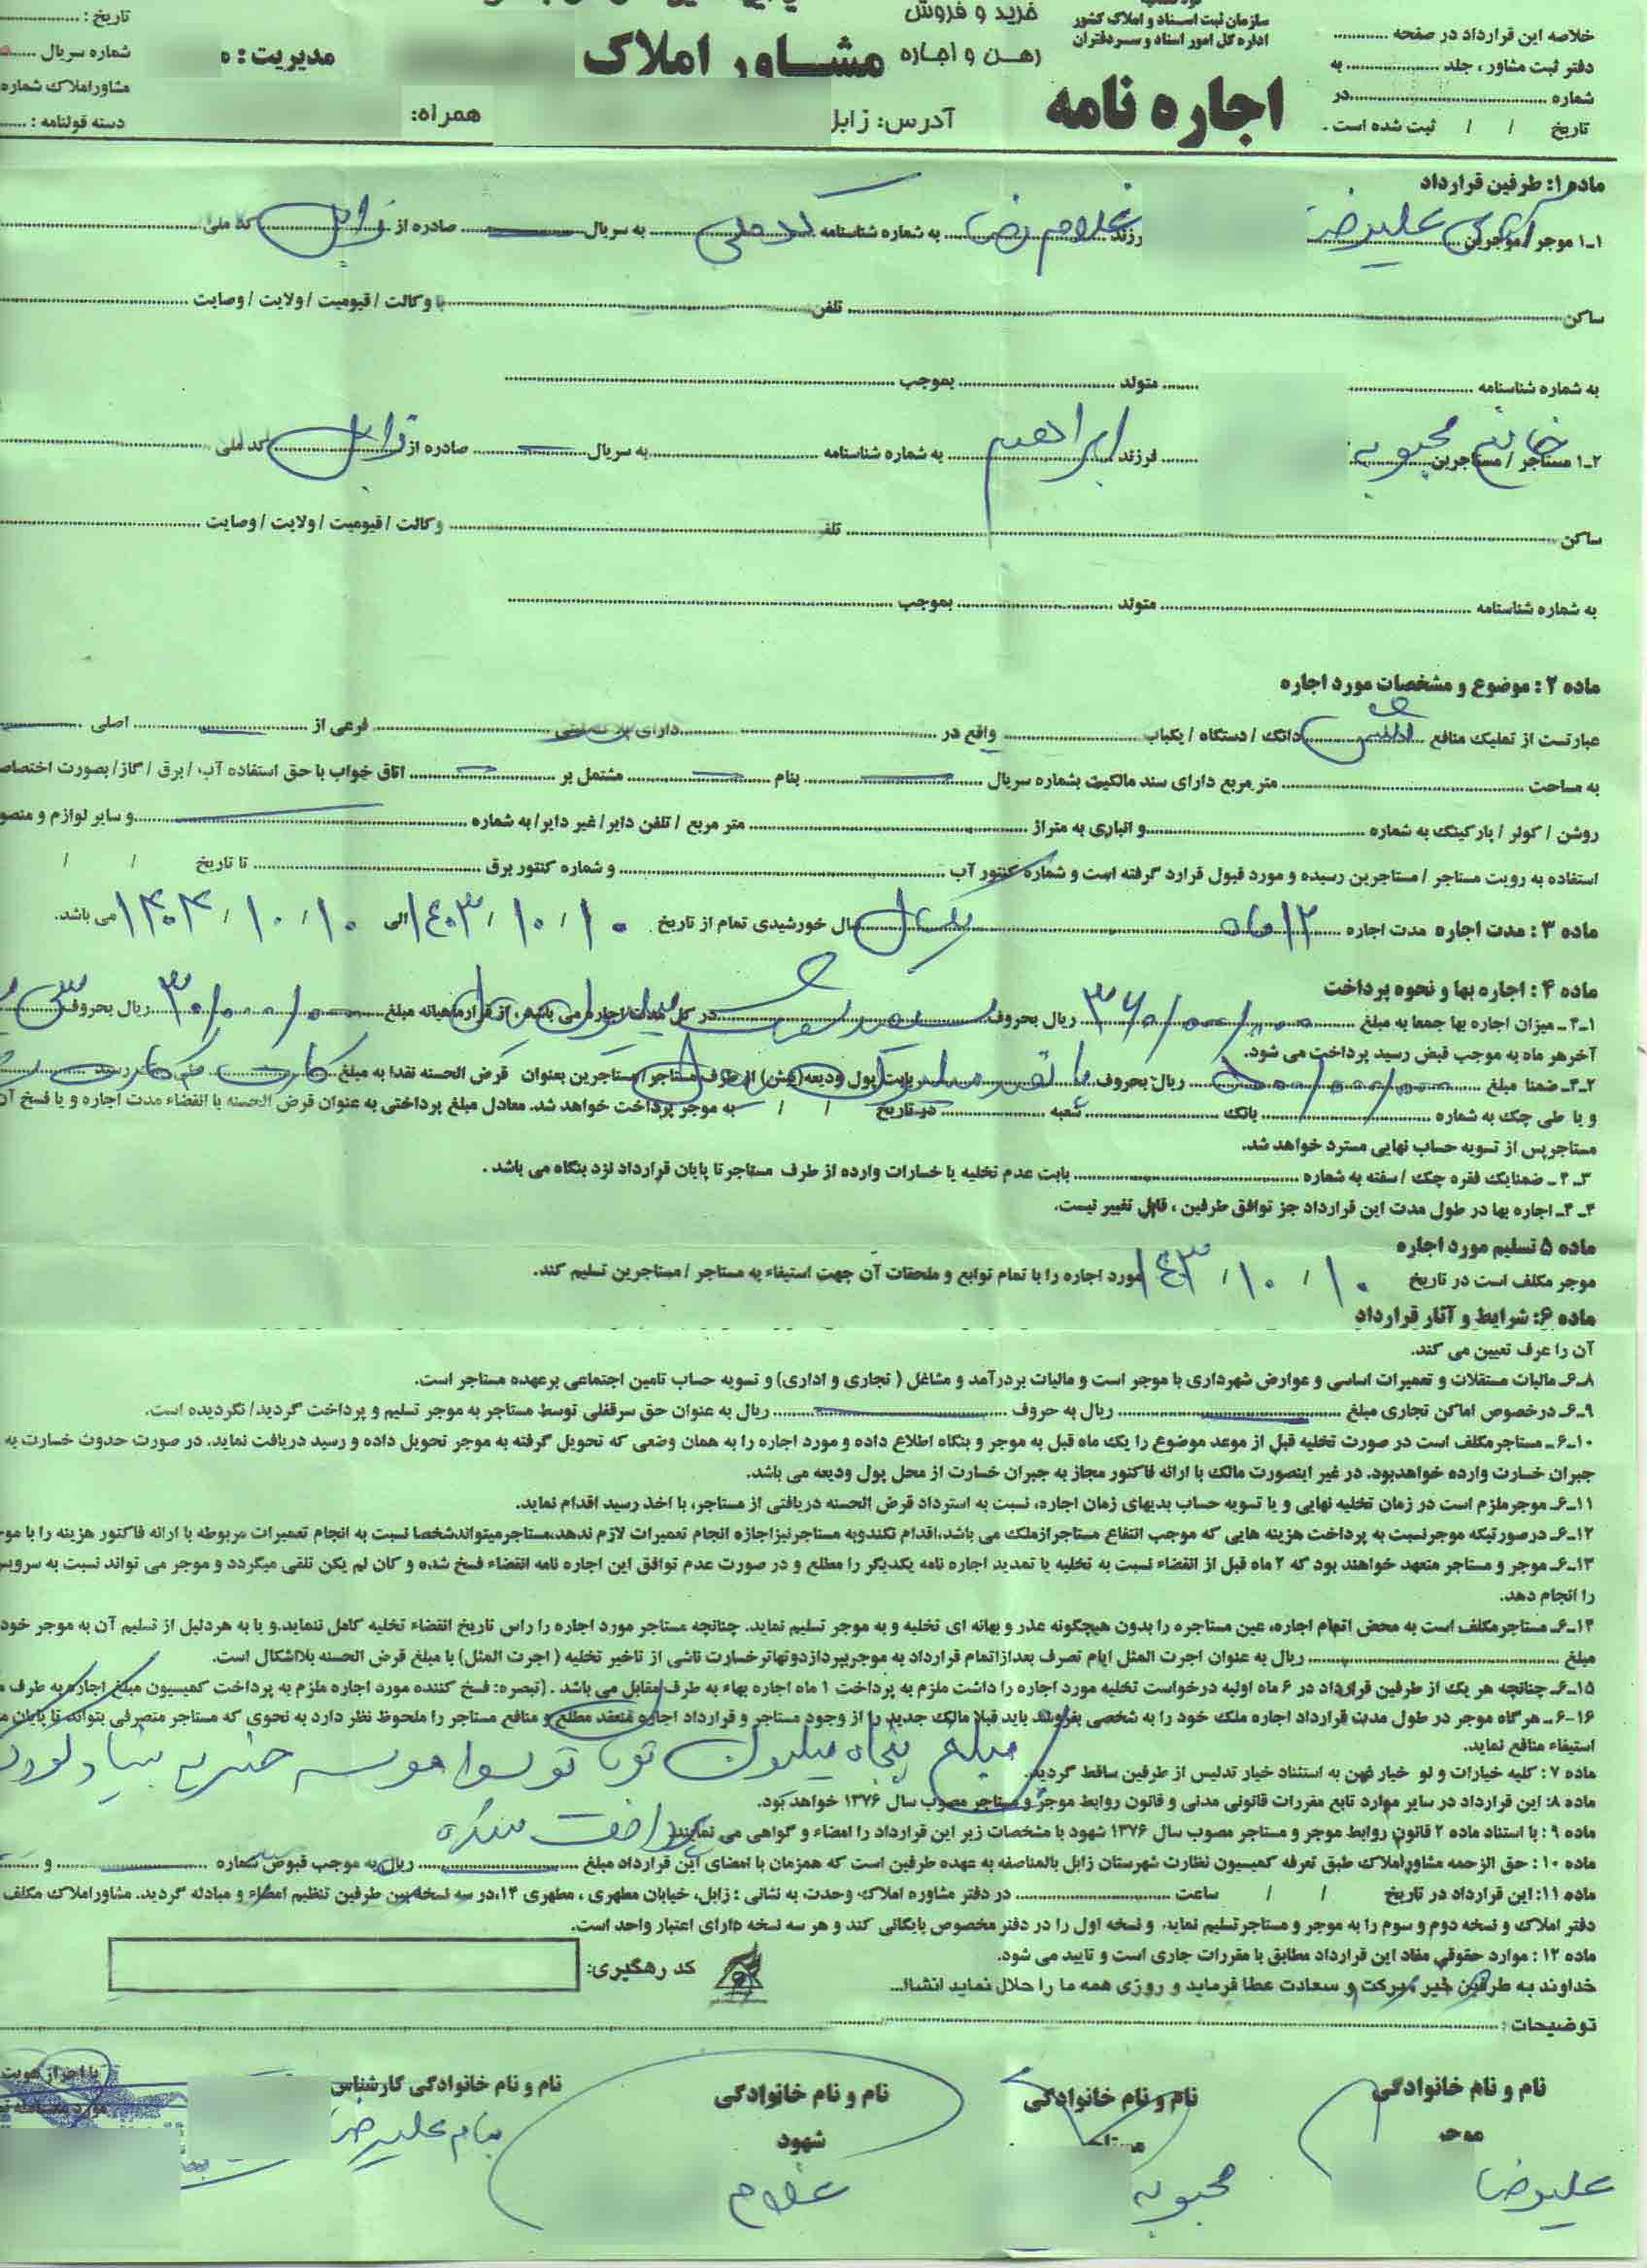 خرید و فروش
رهن و اجاره
مشاور املاک
مدیریت :
سازمان ثبت اسناد و املاک کشور
اداره کل امور اسناد و سردفتران
اجاره نامه
آدرس: زابل
همراه:
خلاصه این قرارداد در صفحه
دفتر ثبت مشاور ، جلد به
شماره در
تاریخ / / ثبت شده است .
تاریخ :
شماره سریال
مشاور املاک شماره
دسته قولنامه :
ماده ۱: طرفین قرارداد
۱ـ۱ موجر / موجرین علیرضا رزند غلامرضا به شماره شناسنامه کدملی به سریال صادره از زابل کد ملی
ساکن تلفن با وکالت / قیومیت / ولایت / وصایت
به شماره شناسنامه متولد بموجب
۲ـ۱ مستاجر / مستاجرین خانم محبوبه فرزند ابراهیم به شماره شناسنامه به سریال صادره از زابل کد ملی
ساکن تلف وکالت / قیومیت / ولایت / وصایت
به شماره شناسنامه متولد بموجب
ماده ۲ : موضوع و مشخصات مورد اجاره
عبارتست از تملیک منافع شش دانگ / دستگاه / یکباب واقع در دارای فرعی از اصلی
به مساحت متر مربع دارای سند مالکیت بشماره سریال بنام مشتمل بر اتاق خواب با حق استفاده آب / برق / گاز/ بصورت اختصاص
روشن / کولر / پارکینک به شماره و انباری به متراژ متر مربع / تلفن دایر/ غیر دایر/ به شماره و سایر لوازم و منصو
استفاده به رویت مستاجر / مستاجرین رسیده و مورد قبول قرارد گرفته است و شماره کنتور آب و شماره کنتور برق تا تاریخ / /
ماده ۳ : مدت اجاره مدت اجاره ۱۲ ماه یکسال سال خورشیدی تمام از تاریخ ۱۴۰۳/۱۰/۱۰ الی ۱۴۰۴/۱۰/۱۰ می باشد.
ماده ۴ : اجاره بها و نحوه پرداخت
۱ـ۴ ـ میزان اجاره بها جمعا به مبلغ ۳۶۰/۰۰۰/۰۰۰ ریال بحروف سیصد و شصت میلیون ریال در کل مدت اجاره می باشد ، از قرار ماهیانه مبلغ ۳۰/۰۰۰/۰۰۰ ریال بحروف سی
آخر هر ماه به موجب قبض رسید پرداخت می شود.
۲ـ۴ـ ضمنا مبلغ ۵۰۰/۰۰۰/۰۰۰ ریال بحروف پانصد میلیون ریال بابت پول ودیعه(پیش) از طرف مستاجر / مستاجرین بعنوان قرض الحسنه نقدا به مبلغ کارت به کارت رسید
و یا طی چک به شماره بانک شعبه در تاریخ / / به موجر پرداخت خواهد شد. معادل مبلغ پرداختی به عنوان قرض الحسنه با انقضاء مدت اجاره و یا فسخ آن
مستاجر پس از تسویه حساب نهایی مسترد خواهد شد.
۳ـ ۴ ـ ضمنایک فقره چک / سفته به شماره بابت عدم تخلیه یا خسارات وارده از طرف مستاجر تا پایان قرارداد نزد بنگاه می باشد .
۴ـ ۴ـ اجاره بها در طول مدت این قرارداد جز توافق طرفین ، قابل تغییر نیست.
ماده ۵ تسلیم مورد اجاره
موجر مکلف است در تاریخ ۱۴۰۳/۱۰/۱۰ مورد اجاره را با تمام توابع و ملحقات آن جهت استیفاء به مستاجر / مستاجرین تسلیم کند.
ماده ۶: شرایط و آثار قرارداد
آن را عرف تعیین می کند.
۸ـ۶ـ مالیات مستقلات و تعمیرات اساسی و عوارض شهرداری با موجر است و مالیات بردرآمد و مشاغل ( تجاری و اداری) و تسویه حساب تامین اجتماعی برعهده مستاجر است.
۹ـ۶ـ درخصوص اماکن تجاری مبلغ ریال به حروف ریال به عنوان حق سرقفلی توسط مستاجر به موجر تسلیم و پرداخت گردید/ نگردیده است.
۱۰ـ۶ـ مستاجر مکلف است در صورت تخلیه قبل از موعد موضوع را یک ماه قبل به موجر و بنگاه اطلاع داده و مورد اجاره را به همان وضعی که تحویل گرفته به موجر تحویل داده و رسید دریافت نماید. در صورت حدوث خسارت به
جبران خسارت وارده خواهدبود. در غیر اینصورت مالک با ارائه فاکتور مجاز به جبران خسارت از محل پول ودیعه می باشد.
۱۱ـ۶ـ موجر ملزم است در زمان تخلیه نهایی و یا تسویه حساب بدیهای زمان اجاره، نسبت به استرداد قرض الحسنه دریافتی از مستاجر، با اخذ رسید اقدام نماید.
۱۲ـ۶ـ درصورتیکه موجر نسبت به پرداخت هزینه هایی که موجب انتفاع مستاجر از ملک می باشد، اقدام نکند و به مستاجر نیز اجازه انجام تعمیرات لازم ندهد، مستاجر میتواند شخصا نسبت به انجام تعمیرات مربوطه با ارائه فاکتور هزینه را با موج
۱۳ـ۶ـ موجر و مستاجر متعهد خواهند بود که ۲ ماه قبل از انقضاء نسبت به تخلیه یا تمدید اجاره نامه یکدیگر را مطلع و در صورت عدم توافق این اجاره نامه انقضاء فسخ شده و کان لم یکن تلقی میگردد و موجر می تواند نسبت به سرویس
را انجام دهد.
۱۴ـ۶ـ مستاجر مکلف است به محض اتمام اجاره، عین مستاجره را بدون هیچگونه عذر و بهانه ای تخلیه و به موجر تسلیم نماید. چنانچه مستاجر مورد اجاره را راس تاریخ انقضاء تخلیه کامل ننماید. و یا به هردلیل از تسلیم آن به موجر خود
مبلغ ریال به عنوان اجرت المثل ایام تصرف بعد از اتمام قرارداد به موجر بپردازد و تهاتر خسارت ناشی از تاخیر تخلیه ( اجرت المثل) با مبلغ قرض الحسنه بلااشکال است.
۱۵ـ۶ـ چنانچه هر یک از طرفین قرارداد در ۶ ماه اولیه درخواست تخلیه مورد اجاره را داشت ملزم به پرداخت ۱ ماه اجاره بهاء به طرف مقابل می باشد . (تبصره: فسخ کننده مورد اجاره ملزم به پرداخت کمیسیون مبلغ اجاره به طرف
۱۶-۶ـ هر گاه موجر در طول مدت قرارداد اجاره ملک خود را به شخصی بفروشد باید قبلا مالک جدید را از وجود مستاجر و قرارداد اجاره منعقد مطلع و منافع مستاجر را ملحوظ نظر دارد به نحوی که مستاجر متصرفی بتواند تا پایان
استیفاء منافع نماید.
مبلغ پنجاه میلیون تومان توسط موسسه خیریه بنیاد
ماده ۷ : کلیه خیارات و لو خیار غبن به استثناء خیار تدلیس از طرفین ساقط گردید.
ماده ۸: این قرارداد در سایر موارد تابع مقررات قانونی مدنی و قانون روابط موجر و مستاجر مصوب سال ۱۳۷۶ خواهد بود.
پرداخت شده
ماده ۹ : با استناد ماده ۲ قانون روابط موجر و مستاجر مصوب سال ۱۳۷۶ شهود با مشخصات زیر این قرارداد را امضاء و گواهی می نمایند
ماده ۱۰ : حق الزحمه مشاور املاک طبق تعرفه کمیسیون نظارت شهرستان زابل بالمناصفه به عهده طرفین است که همزمان با امضای این قرارداد مبلغ ریال به موجب قبوض شماره و
ماده ۱۱: این قرارداد در تاریخ / / ساعت در دفتر مشاوره املاک وحدت به نشانی : زابل، خیابان مطهری ، مطهری ۱۴، در سه نسخه بین طرفین تنظیم امضاء و مبادله گردید. مشاور املاک مکلف
دفتر املاک و نسخه دوم و سوم را به موجر و مستاجر تسلیم نماید، و نسخه اول را در دفتر مخصوص بایگانی کند و هر سه نسخه دارای اعتبار واحد است.
ماده ۱۲ : موارد حقوقی مفاد این قرارداد مطابق با مقررات جاری است و تایید می شود.
خداوند به طرفین خیر و برکت و سعادت عطا فرماید و روزی همه ما را حلال نماید انشاا...
کد رهگیری:
توضیحات :
نام و نام خانوادگی
موجر
علیرضا
نام و نام خانوادگی
محبوبه
نام و نام خانوادگی
شهود
غلام
نام و نام خانوادگی کارشناس
علیرضا
با احراز هویت